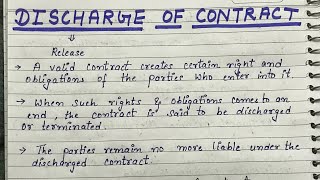 DISCHARGE OF CONTRACT
⇓
Release
→ A valid contract creates certain right and
obligations of the parties who enter into it
→ When such rights & obligations comes to an
end, the contract is said to be discharged
or terminated.
→ The parties remain no more liable under the
discharged contract